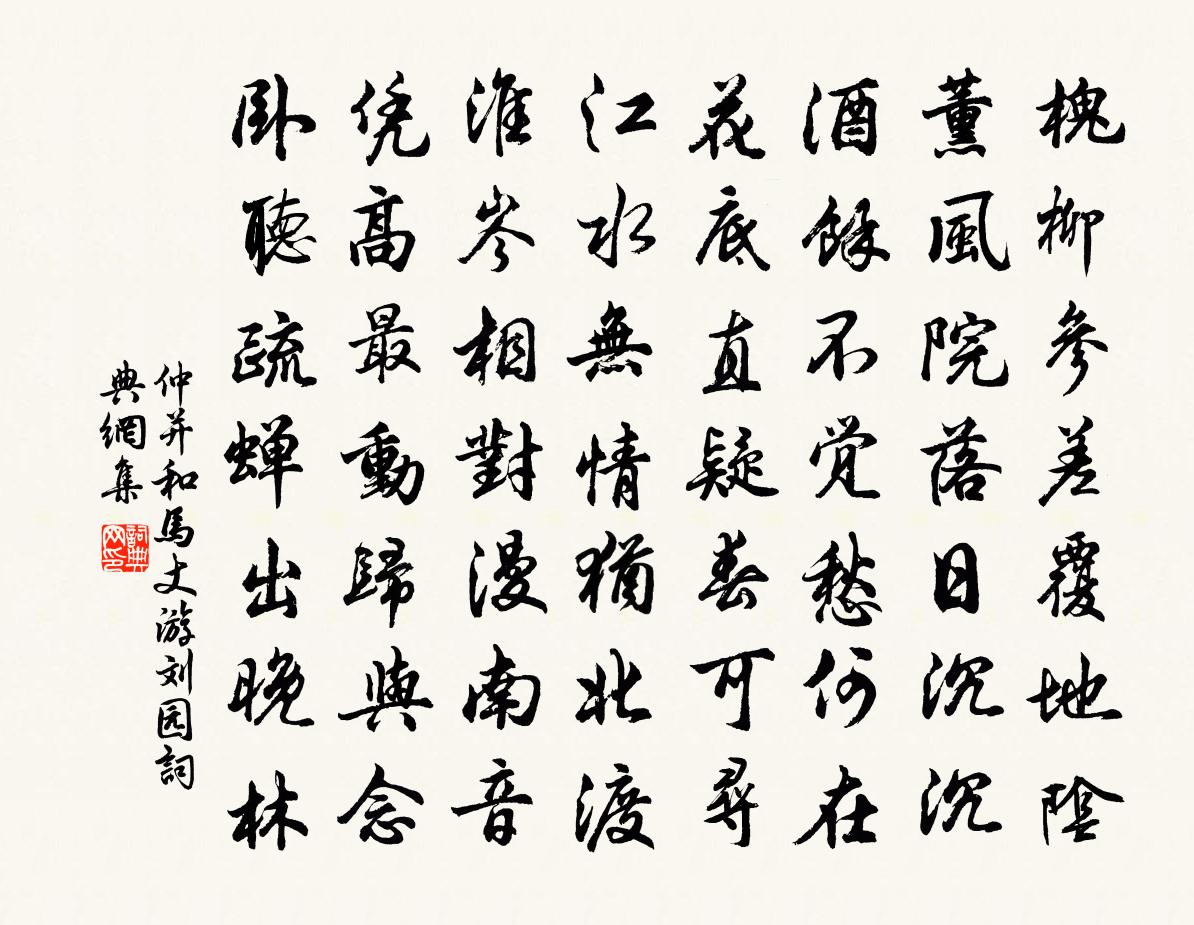 槐柳參差覆地陰
薰風院落日沉沉
酒餘不覺愁何在
花底直疑春可尋
江水無情猶北渡
淮岑相對漫南音
凭高最動歸與念
卧聽疏蝉出晚林
仲并和馬丈游刘园詞
典網集
詞典网印